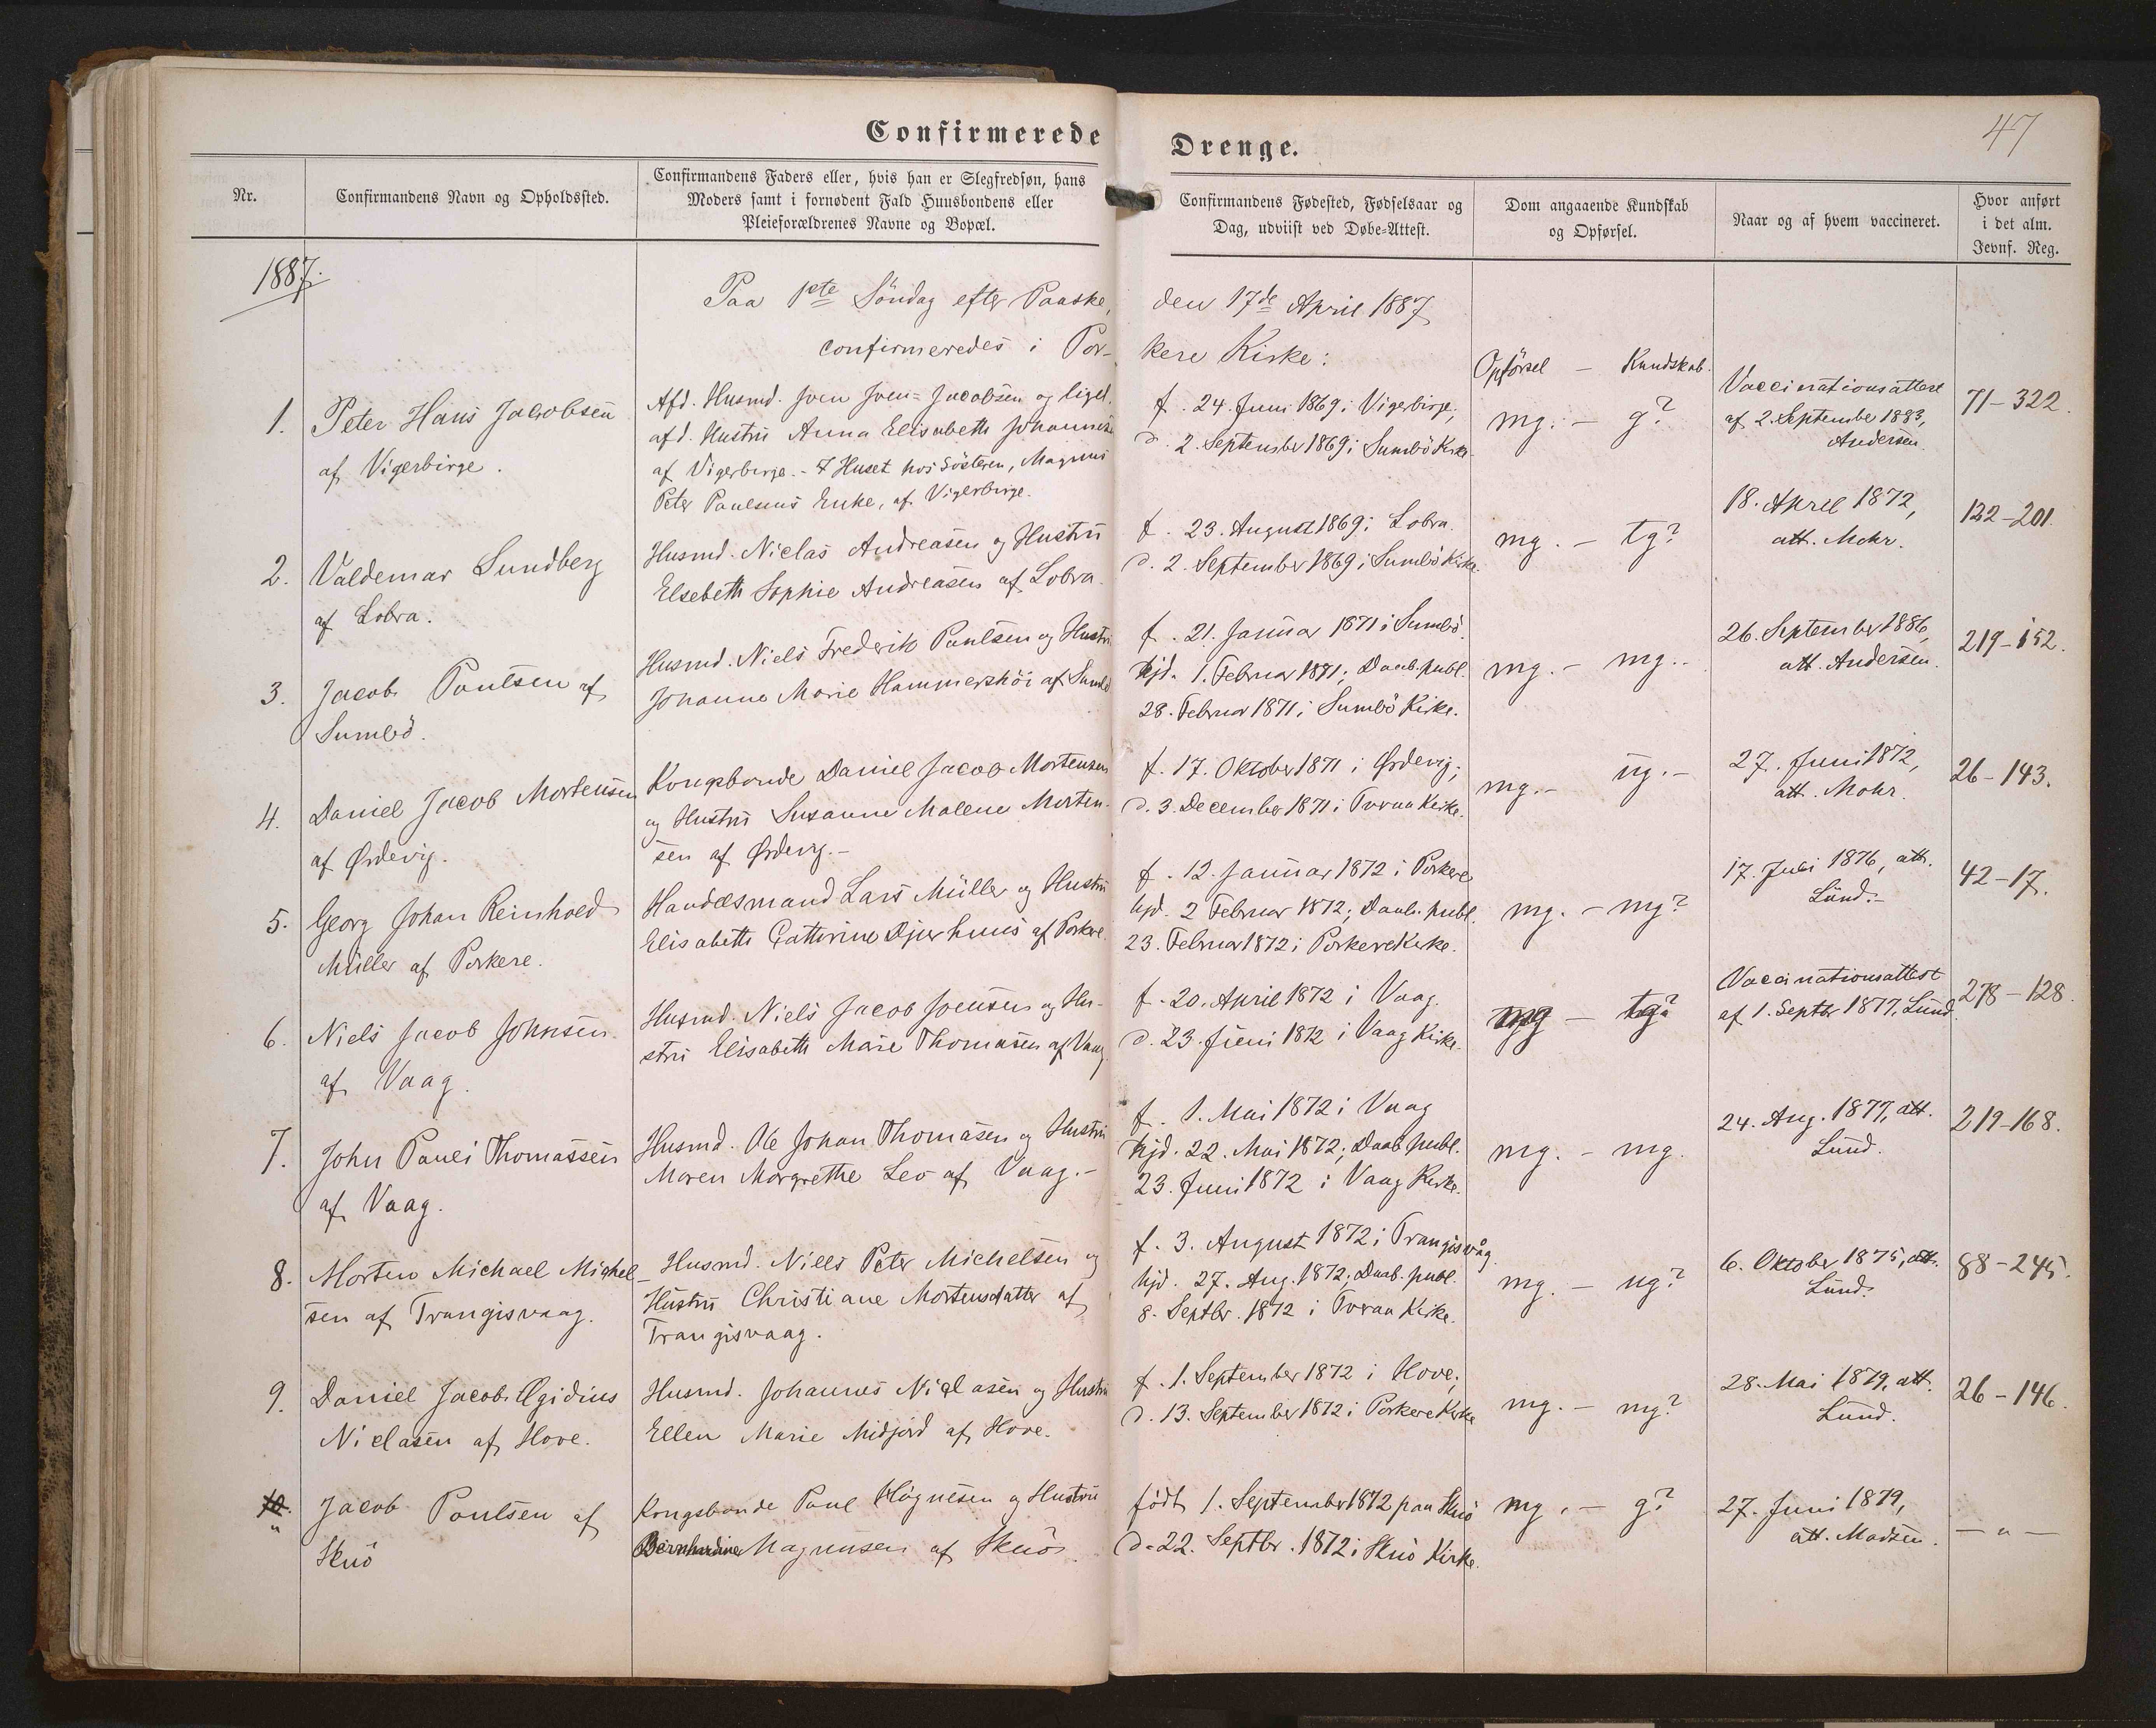 Confirmerede
Drenge.
47
Nr.
Confirmandens Navn og Opholdssted.
Confirmandens Faders eller, hvis han er Slegfredsøn, hans
Moders samt i fornødent Fald Huusbondens eller
Pleieforældrenes Navne og Bopæl.
Confirmandens Fødested, Fødselsaar og
Dag, udviist ved Døbe-Attest.
Dom angaaende Kundskab
og Opførsel.
Naar og af hvem vaccineret.
Hvor anført
i det alm.
Jevnf. Reg.
1887.
Paa 1ste Söndag efter Paaske,
den 17de April 1887
confirmeredes i Por-
kere Kirke:
Opförsel - Kundskab.
1.
Peter Hans Jacobsen
af Vigerbirge.
Afd. Husmd. Joen Joen=Jacobsen og ligel.
afd. Hustru Anna Elisabeth Johannes
af Vigerbirge. - I Huset hos Sösteren, Magnus
Peter Poulsens Enke, af Vigerbirge.
f. 24. Juni 1869 i Vigerbirge,
d. 2. September 1869 i Sumbö Kirke.
mg. - g?
Vaccinationsattest
af 2. September 1883,
Andersen.
71-322.
2.
Valdemar Lundberg
af Lobra.
Husmd. Niclas Andreasen og Hustru
Elsebeth Sophie Andreasen af Lobra.
f. 23. August 1869 i Lobra.
d. 2. September 1869 i Sumbö Kirke.
mg. - tg?
18. April 1872,
att. Mohr.
122-201.
3.
Jacob Poulsen af
Sumbö.
Husmd. Niels Frederik Poulsen og Hustru
Johanne Marie Hammershöi af Sumbö
f. 21. Januar 1871 i Sumbö.
hjd. 1. Februar 1871; Daab. publ.
28. Februar 1871 i Sumbö Kirke.
mg. - mg.-
26. September 1886,
att. Andersen.
219-152.
4.
Daniel Jacob Mortensen
af Ørdevig.
Kongsbonde Daniel Jacob Mortensen
og Hustru Susanne Malene Morten-
sen af Ørdevig.-
f. 17. Oktober 1871 i Ørdevig;
d. 3. December 1871 i Tvraa Kirke.
mg.- ug.-
27. Juni 1872,
att. Mohr.
26-143.
5.
Georg Johan Reinhold
Müller af Porkere.
Handelsmand Lars Müller og Hustru
Elisabeth Cathrine Djurhuus af Porkere.
f. 12. Januar 1872 i Porkere
hjd. 2 Februar 1872; Daab. publ.
23. Februar 1872 i Porkere Kirke.
mg. - mg?
17. Juli 1876, att.
Lund.-
42-17.
6.
Niels Jacob Johnsen
af Vaag.
Husmd. Niels Jacob Joensen og Hu-
stru Elisabeth Marie Thomasen af Vaag
f. 20. April 1872 i Vaag.
d. 23. Juni 1872 i Vaag Kirke.
mg - tg?
Vaccinationsattest
af 1. Septbr 1877, Lund.
278-128.
7.
John Pauli Thomassen
af Vaag.
Husmd. Ole Johan Thomasen og Hustru
Maren Margrethe Leo af Vaag.-
f. 1. Mai 1872 i Vaag
hjd. 22. Mai 1872; Daab. publ.
23. Juni 1872 i Vaag Kirke.
mg. - mg.
24. Aug. 1877, att.
Lund.
219-168.
8.
Morten Michael Michel-
sen af Trangisvaag.
Husmd. Niels Peter Michelsen og
Hustru Christiane Mortensdatter af
Trangisvaag.
f. 3. August 1872 i Trangisvåg.
hjd. 27. Aug. 1872; Daab. publ.
8. Septbr. 1872 i Tvraa Kirke.
mg. - ug?
6. Oktober 1875, att.
Lund.
88-245.
9.
Daniel Jacob Ægidius
Niclasen af Hove.
Husmd. Johannes Niclasen og Hustru
Ellen Marie Midjord af Hove.
f. 1. September 1872 i Hove;
d. 13. September 1872 i Porkere Kirke
mg. - mg?
28. Mai 1879, att.
Lund.
26-146.
10.
"
Jacob Poulsen af
Skuö
Kongsbonde Poul Högnesen og Hustru
Bernhardine Magnusen af Skuö.
födt 1. September 1872 paa Skuö
d. 22. Septbr. 1872 i Skuö Kirke.
mg. - g?
27. Juni 1879,
att. Madsen.
- " -